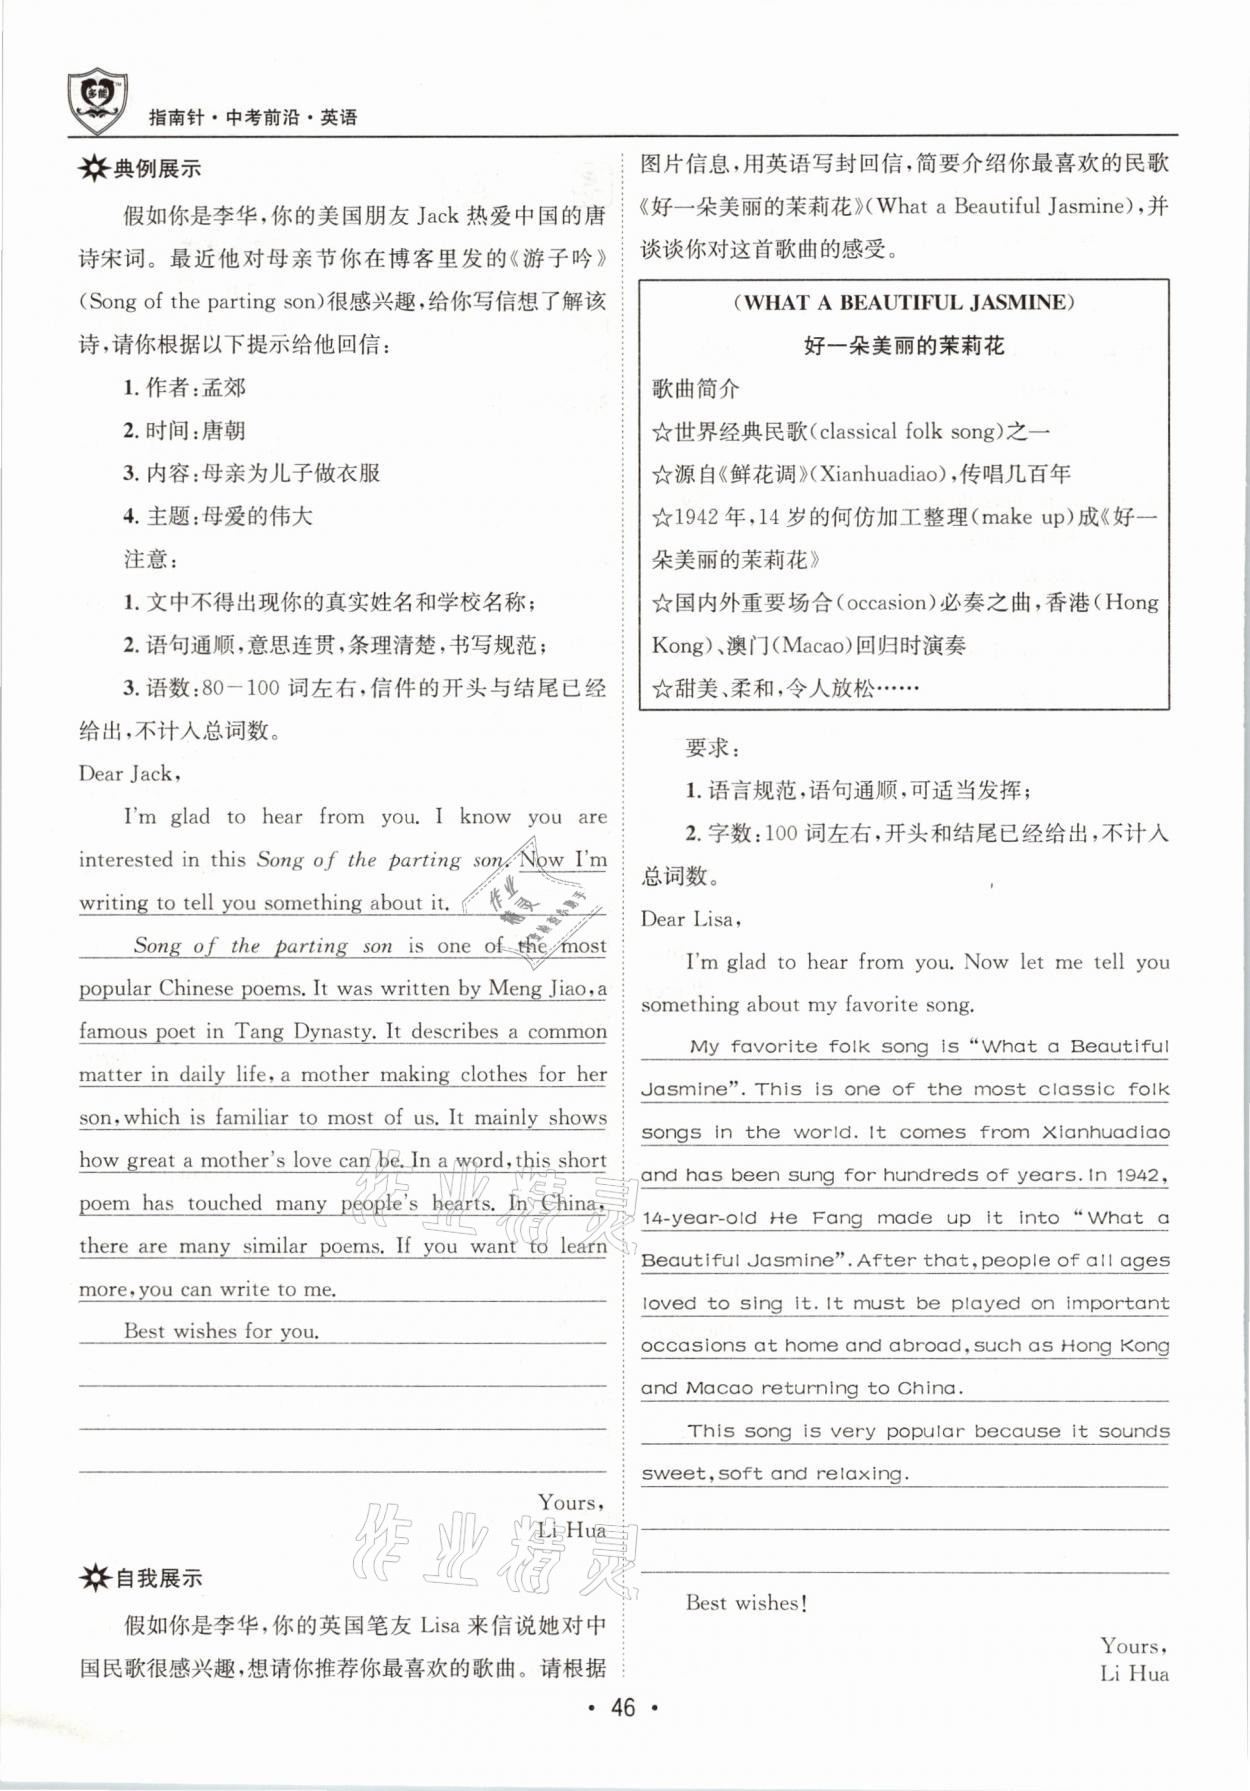 多能
指南针·中考前沿·英语
典例展示
假如你是李华,你的美国朋友 Jack 热爱中国的唐
诗宋词。最近他对母亲节你在博客里发的《游子吟》
(Song of the parting son)很感兴趣,给你写信想了解该
诗,请你根据以下提示给他回信:
1. 作者:孟郊
2. 时间:唐朝
3. 内容:母亲为儿子做衣服
4. 主题:母爱的伟大
注意:
1. 文中不得出现你的真实姓名和学校名称;
2. 语句通顺,意思连贯,条理清楚,书写规范;
3. 语数:80-100 词左右,信件的开头与结尾已经
给出,不计入总词数。
Dear Jack,
I'm glad to hear from you. I know you are
interested in this Song of the parting son. Now I'm
writing to tell you something about it.
Song of the parting son is one of the most
popular Chinese poems. It was written by Meng Jiao, a
famous poet in Tang Dynasty. It describes a common
matter in daily life, a mother making clothes for her
son, which is familiar to most of us. It mainly shows
how great a mother's love can be. In a word, this short
poem has touched many people's hearts. In China,
there are many similar poems. If you want to learn
more, you can write to me.
Best wishes for you.
Yours,
Li Hua
自我展示
假如你是李华,你的英国笔友 Lisa 来信说她对中
国民歌很感兴趣,想请你推荐你最喜欢的歌曲。请根据
图片信息,用英语写封回信,简要介绍你最喜欢的民歌
《好一朵美丽的茉莉花》(What a Beautiful Jasmine),并
谈谈你对这首歌曲的感受。
(WHAT A BEAUTIFUL JASMINE)
好一朵美丽的茉莉花
歌曲简介
☆世界经典民歌(classical folk song)之一
☆源自《鲜花调》(Xianhuadiao),传唱几百年
☆1942 年,14 岁的何仿加工整理(make up)成《好一
朵美丽的茉莉花》
☆国内外重要场合(occasion)必奏之曲,香港(Hong
Kong)、澳门(Macao)回归时演奏
☆甜美、柔和,令人放松……
要求:
1. 语言规范,语句通顺,可适当发挥;
2. 字数:100 词左右,开头和结尾已经给出,不计入
总词数。
Dear Lisa,
I'm glad to hear from you. Now let me tell you
something about my favorite song.
My favorite folk song is "What a Beautiful
Jasmine". This is one of the most classic folk
songs in the world. It comes from Xianhuadiao
and has been sung for hundreds of years. In 1942,
14-year-old He Fang made up it into "What a
Beautiful Jasmine". After that, people of all ages
loved to sing it. It must be played on important
occasions at home and abroad, such as Hong Kong
and Macao returning to China.
This song is very popular because it sounds
sweet, soft and relaxing.
Best wishes!
Yours,
Li Hua
· 46 ·
作业精灵
作业精灵
作业
精灵